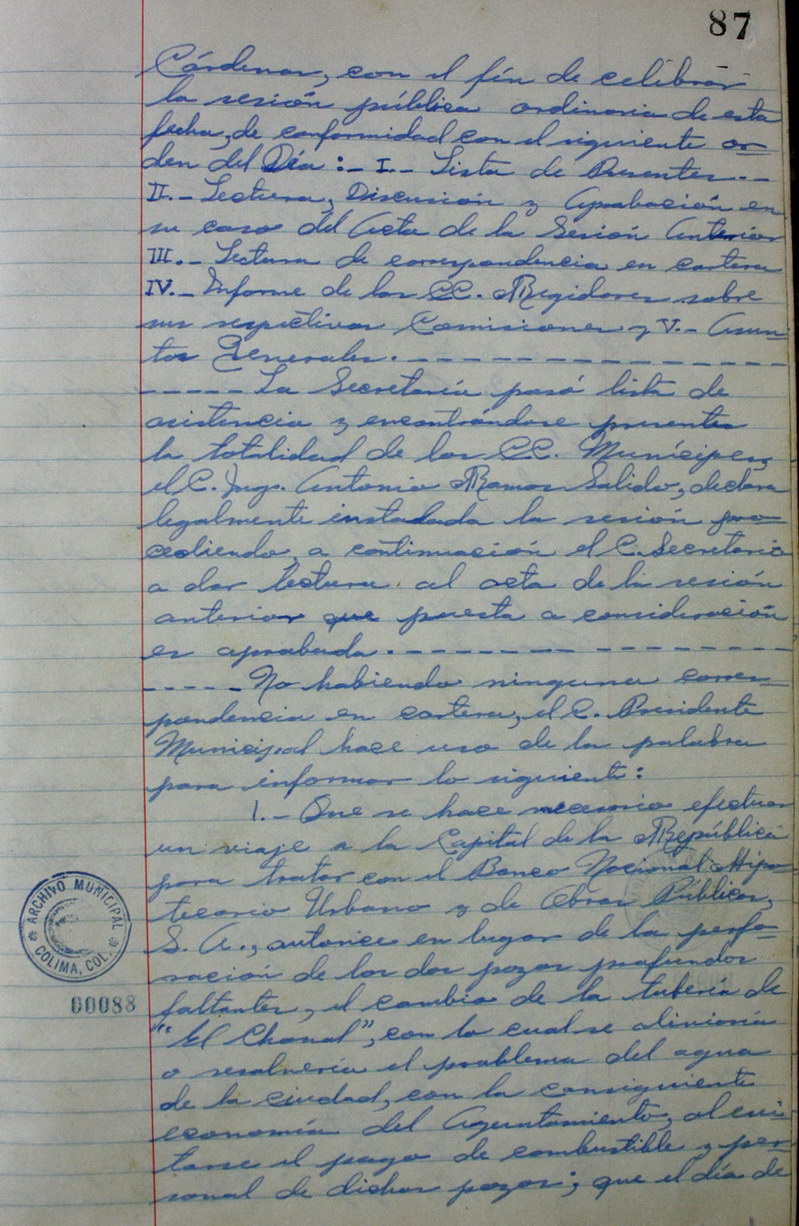 87
Cárdenas, con el fín de celebrar
la sesión pública ordinaria de esta
fecha, de conformidad con el siguiente or-
den del Día:- I.- Lista de Presentes.-
II.- Lectura, Discusión y Aprobación en
su caso del Acta de la Sesión Anterior
III.- Lectura de correspondencia en cartera
IV.- Informe de los CC. Regidores sobre
sus respectivas Comisiones y V.- Asun-
tos Generales.- - - - - - - - - - - - -
- - - - - La Secretaría pasó lista de
asistencia y encontrándose presentes
la totalidad de los CC. Munícipes,
el C. Ing. Antonio Ramos Salido, declara
legalmente instalada la sesión pro-
cediendo, a continuación el C. Secretario
a dar lectura al acta de la sesión
anterior que puesta a consideración
es aprobada.- - - - - - - - - - - - -
- - - - - No habiendo ninguna corres-
pondencia en cartera, el C. Presidente
Municipal hace uso de la palabra
para informar lo siguiente:
1.- Que se hace necesario efectuar
un viaje a la Capital de la República
para tratar con el Banco Nacional Hipo-
tecario Urbano y de Obras Públicas,
S. A., autorice en lugar de la perfo-
ración de los dos pozos profundos
faltantes, el cambio de la tubería de
"El Chanal", con lo cual se aliviaría
o resolvería el problema del agua
de la ciudad, con la consiguiente
economía del Ayuntamiento, al evi-
tarse el pago de combustible y per-
sonal de dichos pozos; que el día de
ARCHIVO MUNICIPAL
COLIMA, COL.
00088